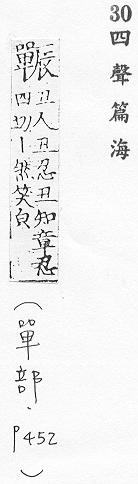 30 四聲篇海
丑人丑忍丑知章忍
四切丨然笑皃
(單部、P452)